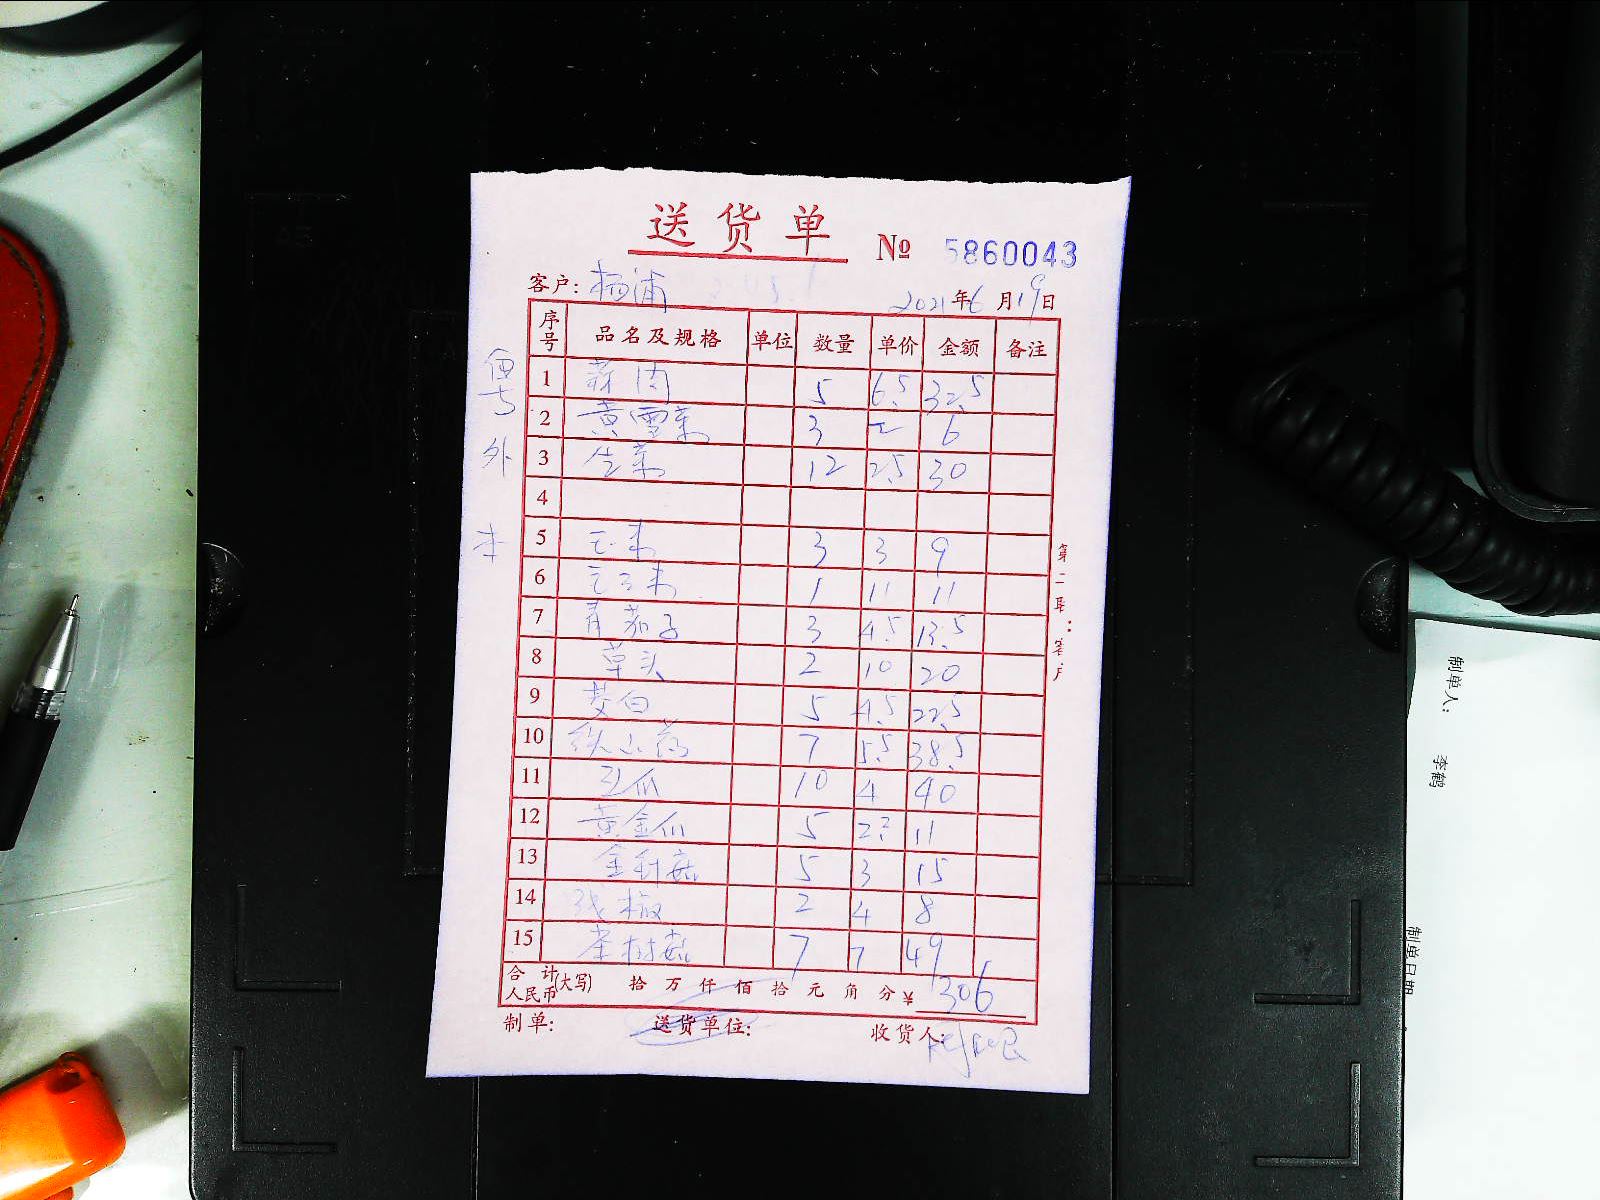 送货单 № 5860043
客户: 杨浦 2021年6月19日
序号 品名及规格 单位 数量 单价 金额 备注
1 蒜肉 5 6.5 32.5
2 黄雪菜 3 2 6
3 生菜 12 2.5 30
4
5 毛 3 3 9
6 1 11 11
7 青茄子 3 4.5 13.5
8 草头 2 10 20
9 茭白 5 4.5 22.5
10 铁山药 7 5.5 38.5
11 瓜 10 4 40
12 黄金瓜 5 2.2 11
13 金针菇 5 3 15
14 线椒 2 4 8
15 茶树菇 7 7 49
合计人民币(大写) 拾 万 仟 佰 拾 元 角 分 ¥ 306
制单: 送货单位: 收货人:
外
第二联:客户
制单人:
李鹤
制单日期